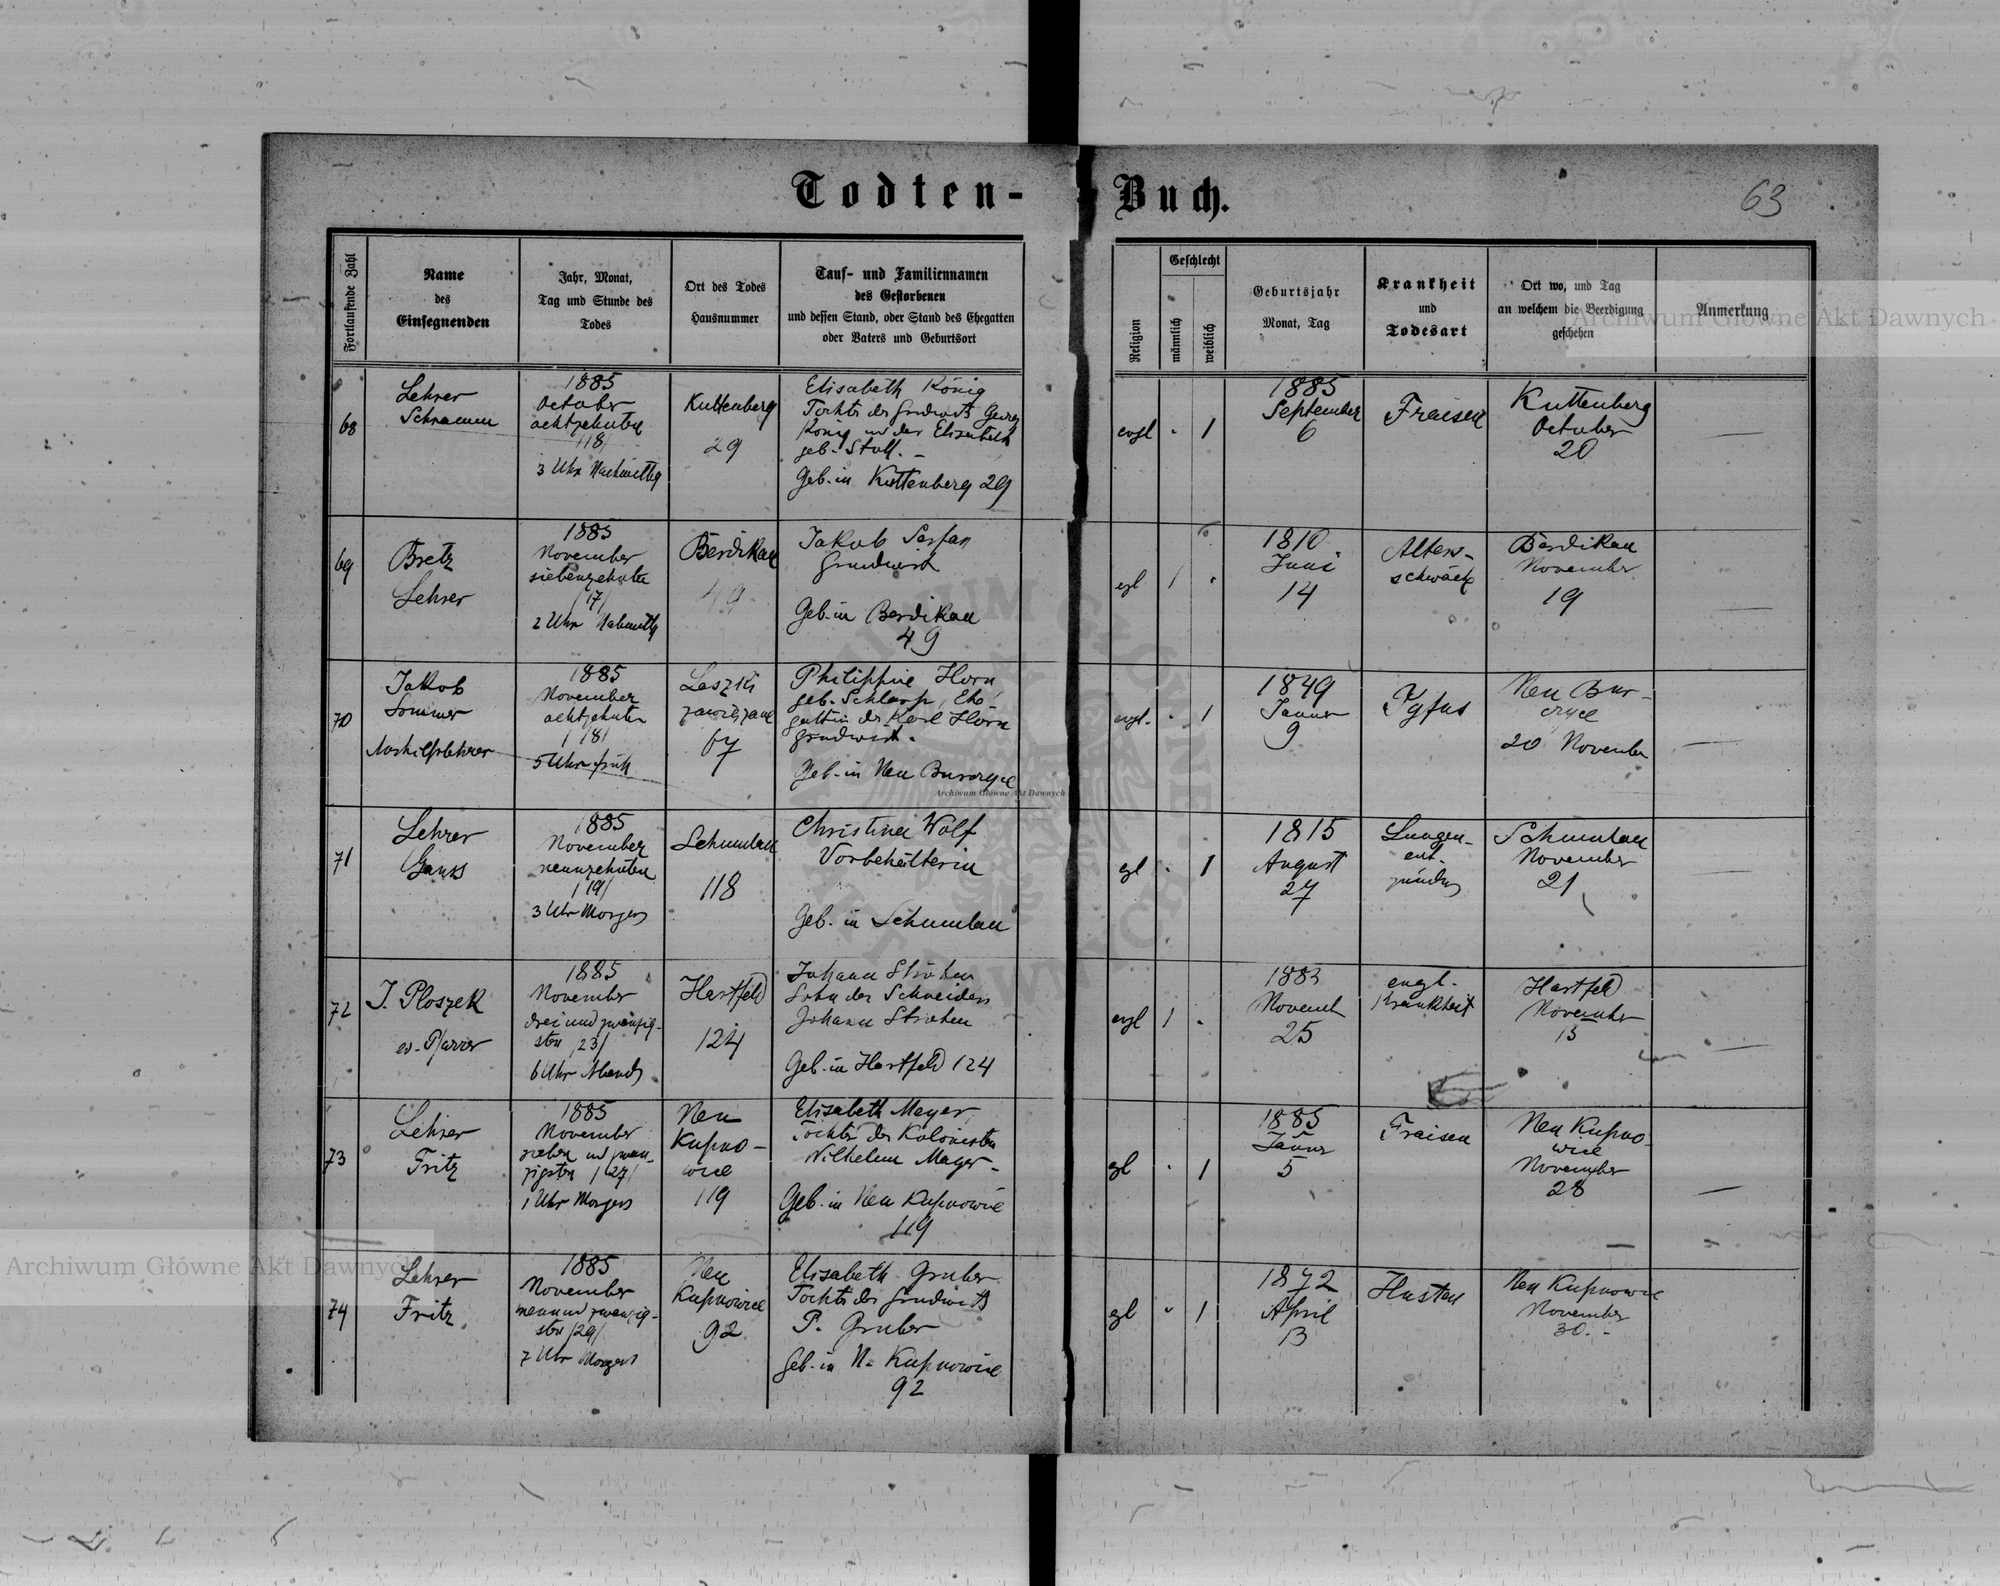 Todten-Buch.
63
Fortlaufende Zahl
Name
des
Einsegnenden
Jahr, Monat,
Tag und Stunde des
Todes
Ort des Todes
Hausnummer
Tauf- und Familiennamen
des Gestorbenen
und dessen Stand, oder Stand des Ehegatten
oder Vaters und Geburtsort
Religion
Geschlecht
männlich
weiblich
Geburtsjahr
Monat, Tag
Krankheit
und
Todesart
Ort wo, und Tag
an welchem die Beerdigung
geschehen
Anmerkung
68
Lehrer
Schramm
1885
October
achtzehnten
/18/
3 Uhr Nachmittg
Kuttenberg
29
Elisabeth König
Tochter des Grundwirts Georg
König und der Elisabeth
geb. Stoll. –
Geb. in Kuttenberg 29
evgl
1
1885
September
6
Fraisen
Kuttenberg
October
20
69
Bretz
Lehrer
1885
November
siebenzehnten
/17/
2 Uhr
Berdikau
49
Jakob
Grundwirt
Geb. in Berdikau
49
egl
1
1810
Juni
14
Alters-
schwäche
Berdikau
November
19
70
Jakob
Sommer
Aushilfslehrer
1885
November
achtzehnten
/18/
5 Uhr früh
Laszki
zawiązane
67
Philippine Horn
geb. Schlarp, Ehe-
gattin des Karl Horn
Grundwirt.
Geb. in Neu Burczyce
evgl.
1
1849
Januar
9
Tyfus
Neu Bur-
czyce
20 November
71
Lehrer
Ganss
1885
November
neunzehnten
/19/
3 Uhr Morgens
Schumlau
118
Christina Wolf
Vorbehälterin
Geb. in Schumlau
egl
1
1815
August
27
Lungen-
ent-
zündung
Schumlau
November
21
72
J. Ploszek
ev. Pfarrer
1885
November
drei und zwanzig-
sten /23/
6 Uhr Abends
Hartfeld
124
Johann
Sohn des Schneiders
Johann
Geb. in Hartfeld 124
evgl
1
1883
Novemb
25
engl.
Krankheit
Hartfeld
November
73
Lehrer
Fritz
1885
November
sieben und zwan-
zigsten /27/
1 Uhr Morgens
Neu
Kupno-
wice
119
Elisabeth Mayer,
Tochter des Kolonisten
Wilhelm Mayer –
Geb. in Neu Kupnowice
119
egl
1
1885
Jänner
5
Fraisen
Neu Kupno-
wice
November
28
74
Lehrer
Fritz
1885
November
neun und zwanzig-
sten /29/
7 Uhr Morgens
Neu
Kupnowice
92
Elisabeth Gruber
Tochter des Grundwirts
P. Gruber
Geb. in N. Kupnowice
92
egl
1
1872
April
13
Husten
Neu Kupnowice
November
30. –
Archiwum Główne Akt Dawnych
Archiwum Główne Akt Dawnych
Archiwum Główne Akt Dawnych